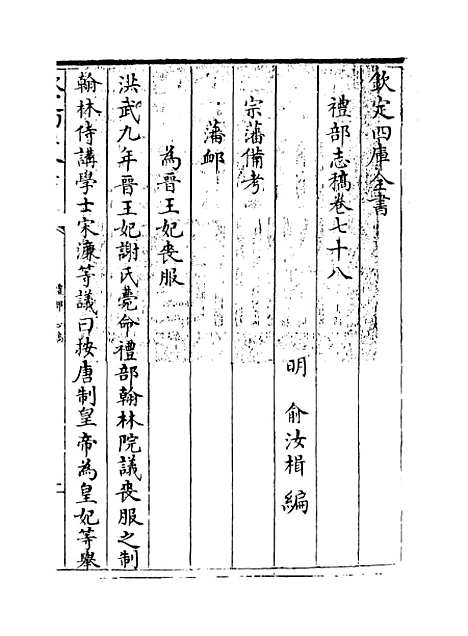 欽定四庫全書
禮部志稿卷七十八
明 俞汝楫 編
宗藩備考
藩䘏
為晉王妃喪服
洪武九年晉王妃謝氏薨命禮部翰林院議喪服之制
翰林侍講學士宋濂等議曰按唐制皇帝為皇妃等舉
禮部志稿